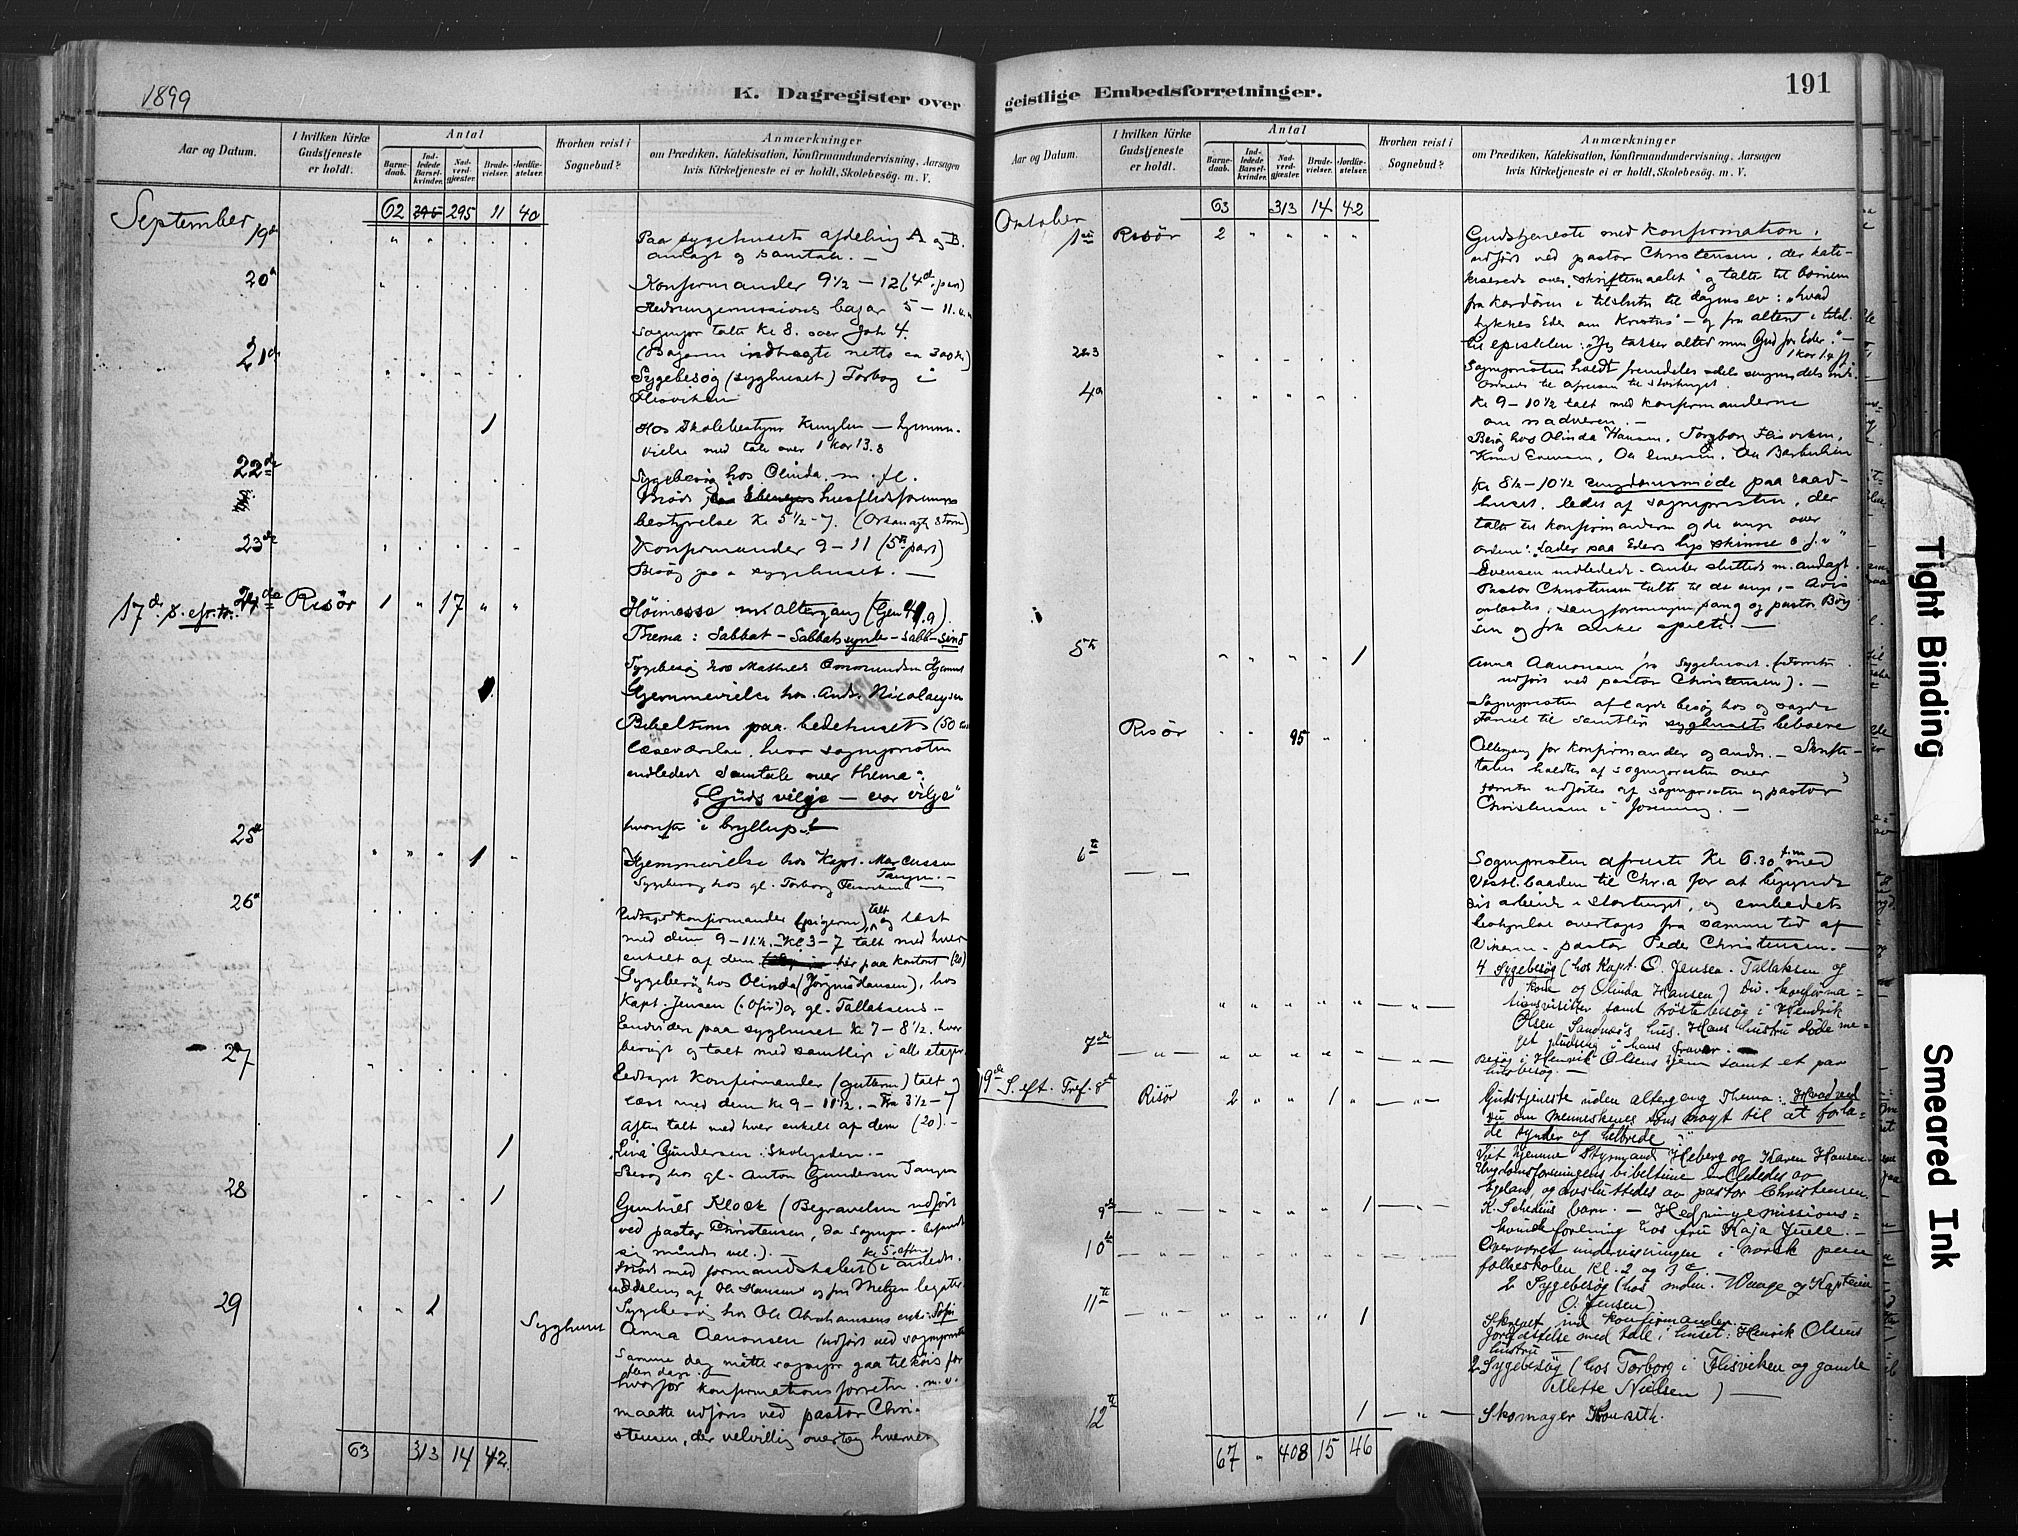 1899
K. Dagregister over
Aar og Datum.
I hvilken Kirke Gudstjeneste er holdt.
Antal
Barnedaab.
Indledede Barselkvinder.
Nadverdgjæster.
Brudevielser.
Jordfæstelser.
Hvorhen reist i Sognebud?
Anmærkninger
om Prædiken, Katekisation, Konfirmandundervisning, Aarsagen
hvis Kirketjeneste ei er holdt, Skolebesøg. m. V.
62 295 295 11 40
September
19de
Paa sygehusets afdeling A og B.
andagt og samtale. —
20de
Konfirmander 9½ – 12 (4de part)
Hedningemissions basar 5 – 11
sognepr talte Kl 8. over Joh 4.
21de
(Basaren indbragte netto ca 300 kr)
Sygebesøg (syghuset) Torborg i
Flisviken
1
Hos Skolebestyrer – hjemme-
vielse med tale over 1 Kor 13.8
22de
Sygebesøg hos Olinda m. fl.
husflidsforenings
bestyrelse Kl 5½–7.
23de
Konfirmander 9 – 11 (5te part)
Besøg paa sygehuset. —
24de
17de S. eft. tr.
Risør 1 " 17 " "
Høimesse m. altergang
Thema: Sabbat – Sabbatssynder – sabb-sind
Sygebesøg hos Mathilde
Hjemmevielse hos Andr. Nicolaysen
Bibeltime paa bedehuset (50
læseværelse, hvor sognepresten
indledede samtale over thema:
"Guds vilje – vor vilje"
hvorefter i bryllup.
25de
1
Hjemmevielse hos Kapt. Marcussen
Tangen. —
Sygebesøg hos gl. Torborg
26de
Konfirmander (pigerne), talt og læst
med dem 9–11½. Kl 3–7 talt med hver
enkelt af dem her paa kontoret (20)
Sygebesøg hos Olinda (Jørgine Hansen), hos
Kapt. Jensen og gl. Tallaksens. –
Endvidere paa syghuset Kl 7–8½. hvor
besøgt og talt med samtlige i alle etager
27
Konfirmander (gutterne) talt og
læst med dem Kl 9–11½. – Fra 3½–7
aften talt med hver enkelt af dem (20). –
1
Gundersen. Skolegaden. –
Besøg hos gl. Anton Gundersen Tangen
28
1
Klock (Begravelsen udført
ved pastor Christensen, da sognepr. befandt
sig mindre vel.). kl 5. aften
Møde med formandskabet i anledn.
uddeling af Ole Hansens og fru legater
29
Sygebesøg hos Ole Abrahamsens enke: Sofie
Syghuset
Anna Aanonsen (udført ved sognepresten
Samme dag måtte sognepr gaa tilkøis for
hvorfor konfirmationsforretn. m.v.
maatte udføres ved pastor Chri-
stensen, der velvillig overtog hvervet
63 313 14 42.
geistlige Embedsforretninger.
191
Aar og Datum.
I hvilken Kirke Gudstjeneste er holdt.
Antal
Barnedaab.
Indledede Barselkvinder.
Nadverdgjæster.
Brudevielser.
Jordfæstelser.
Hvorhen reist i Sognebud?
Anmærkninger
om Prædiken, Katekisation, Konfirmandundervisning, Aarsagen
hvis Kirketjeneste ei er holdt, Skolebesøg. m. V.
63 313 14 42
Oktober
1ste Risør 2 " " " "
Gudstjeneste med Konfirmation,
udført ved pastor Christensen, der kate-
kiserede over "skriftemaalet" og talte til børnene
fra kordøren i tilslutn til dagens ev: "hvad
tykkes Eder om Kristus" – og fra alteret i tilsl.
til epistelen: "Jeg takker altid min Gud for Eder." –
1 Kor 1.4 ff.
2 & 3
Sognepresten holdt fremdeles
4de
Kl 9–10½ talt med konfirmanderne
om nadveren. –
Besøg hos Olinda Hansen, Torborg Flisviken,
Kl 8½–10½ ungdomsmøde paa raad-
huset, ledet af sognepresten, der
talte til konfirmanderne og de unge over
ordene: "Lader saa Eders lys skinne o.s.v."
Evensen indledede. Anker sluttede m. andagt.
Pastor Christensen talte til de unge, – Avis
oplæstes, sangforeningen sang og pastor
sen og frk Anker spilte. –
5te
1
Anna Aanonsen fra sygehuset
udført ved pastor Christensen). –
Sognepresten aflagde besøg hos og sagde
farvel til samtlige syghusets beboere
Risør 95
Altergang for konfirmander og andre. – Skrifte-
talen holdtes af sognepresten over
samt udførtes af sognepresten og pastor
Christensen i forening. –
6te
Sognepresten afreiste Kl 6.30 fm med
Vestl. baaden til Chr.a for at begynde
sit arbeide i Stortinget, og embedets
bestyrelse overtoges fra samme tid af
Vikaren – pastor Peder Christensen. –
4 Sygebesøg (hos Kapt. O. Jensen. Tallaksen og
kone og Olinda Hansen) Div. konfirma-
tionsvisitter samt trøstebesøg i Hendrik
Olsen Sandnæs's hus. Hans hustru døde me-
get pludselig i hans fravær.
7de
Besøg i Henrik Olsens hjem samt et par
husbesøg. –
19de S. eft. Tref. 8de
Risør 2 " " 1 "
Gudstjeneste uden altergang Thema: Hvad ved
du om menneskenes søns magt til at forla-
de synder og helbrede
Viet hjemme Styrmand Heberg og Karen Hansen.
Ungdomsforeningens bibeltime indlededes av
Egeland, og avsluttedes av pastor Christensen.
9de
1
K. Schedins barn. – Hedningemissions-
kvindeforening hos fru Kaja Juell. –
10de
Overværet undervisningen i norsk paa
folkeskolen Kl. 2 og 3 c
2 Sygebesøg (hos mdm. Waage og Kaptein
O. Jensen)
11te
1
Skrevet ind konfirmander.
Jordfæstelse med tale i huset: Henrik Olsens
hustru
2 Sygebesøg (hos Torborg i Flisviken og gamle
Mette Nielsen) —
12te
1
Skomager
67 " 408 15 46
Tight Binding
Smeared Ink